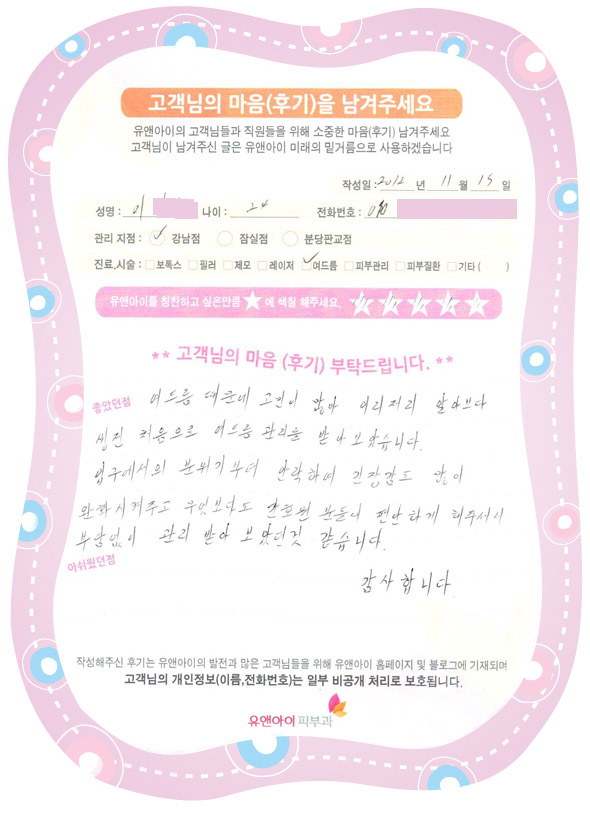 고객님의 마음(후기)을 남겨주세요
유앤아이의 고객님들과 직원들을 위해 소중한 마음(후기) 남겨주세요
고객님이 남겨주신 글은 유앤아이 미래의 밑거름으로 사용하겠습니다
작성일 : 2012 년 11 월 15 일
성명 : 이 나이 : 24 전화번호 : 010
관리 지점 : 강남점 잠실점 분당판교점
진료,시술 : 보톡스 필러 제모 레이저 여드름 피부관리 피부질환 기타 ( )
유앤아이를 칭찬하고 싶은만큼 ★ 에 색칠 해주세요
** 고객님의 마음 (후기) 부탁드립니다. **
좋았던점 여드름 때문에 고민이 많아 이리저리 알아보다
생전 처음으로 여드름 관리를 받아 보았습니다.
입구에서의 분위기부터 안락하여 긴장감도 많이
완화시켜주고 무엇보다도 분들이 편안하게 해주셔서
부담없이 관리 받아 보았던것 같습니다.
아쉬웠던점
감사합니다
작성해주신 후기는 유앤아이의 발전과 많은 고객님들을 위해 유앤아이 홈페이지 및 블로그에 기재되며
고객님의 개인정보(이름,전화번호)는 일부 비공개 처리로 보호됩니다.
유앤아이 피부과